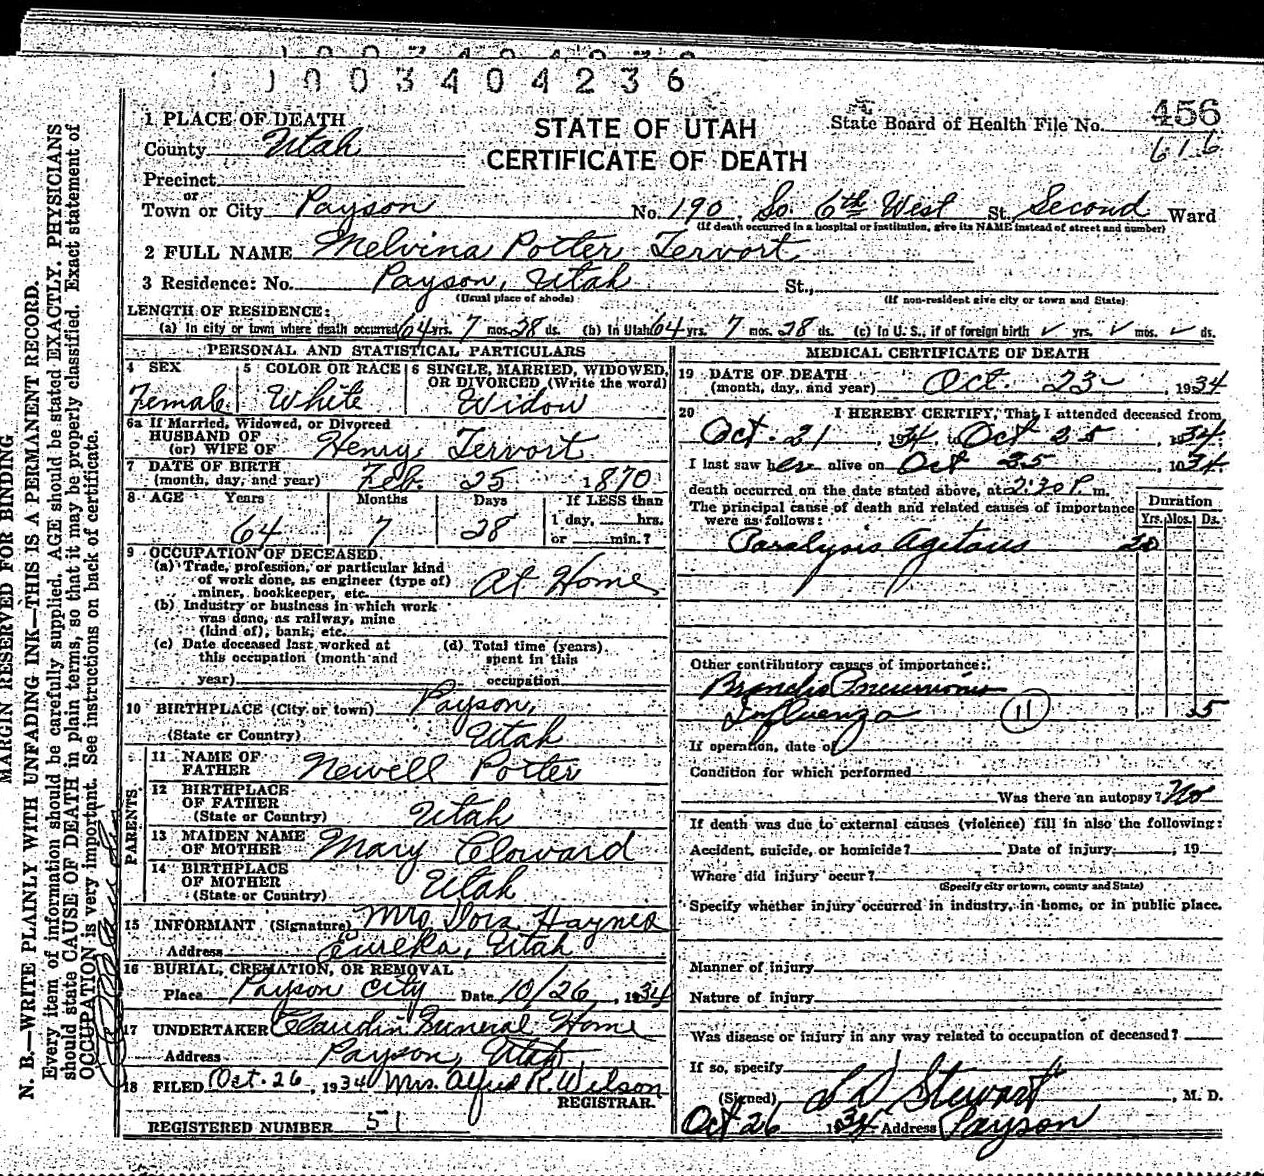 1003404236
1 PLACE OF DEATH
STATE OF UTAH
CERTIFICATE OF DEATH
State Board of Health File No. 456
616
County Utah
Precinct
or
Town or City Payson No. 190 So. 6th West St. Second Ward
(If death occurred in a hospital or institution, give its NAME instead of street and number)
2 FULL NAME Melvina Potter Tervort
3 Residence: No. Payson, Utah St.,
(Usual place of abode) (If non-resident give city or town and State)
LENGTH OF RESIDENCE:
(a) In city or town where death occurred 64 yrs. 7 mos. 28 ds. (b) In Utah 64 yrs. 7 mos. 28 ds. (c) In U. S., if of foreign birth ✓ yrs. ✓ mos. ✓ ds.
PERSONAL AND STATISTICAL PARTICULARS
4 SEX Female
5 COLOR OR RACE White
6 SINGLE, MARRIED, WIDOWED, OR DIVORCED (Write the word)
Widow
6a If Married, Widowed, or Divorced
HUSBAND OF
(or) WIFE OF Henry Tervort
7 DATE OF BIRTH
(month, day, and year) Feb. 25 1870
8 AGE Years Months Days If LESS than
64 7 28 1 day, hrs.
or min.?
9 OCCUPATION OF DECEASED.
(a) Trade, profession, or particular kind
of work done, as engineer (type of)
miner, bookkeeper, etc. At Home
(b) Industry or business in which work
was done, as railway, mine
(kind of), bank, etc.
(c) Date deceased last worked at
this occupation (month and
year)
(d) Total time (years)
spent in this
occupation
10 BIRTHPLACE (City or town) Payson,
(State or Country) Utah
PARENTS
11 NAME OF
FATHER Newell Potter
12 BIRTHPLACE
OF FATHER
(State or Country) Utah
13 MAIDEN NAME
OF MOTHER Mary Cloward
14 BIRTHPLACE
OF MOTHER
(State or Country) Utah
15 INFORMANT (Signature) Mrs Dora Haynes
Address Eureka, Utah
16 BURIAL, CREMATION, OR REMOVAL
Place Payson City Date 10/26, 1934
17 UNDERTAKER Claudin Funeral Home
Address Payson, Utah
18 FILED Oct. 26, 1934 Mrs. Alfred R. Wilson
REGISTRAR.
REGISTERED NUMBER 51
MEDICAL CERTIFICATE OF DEATH
19 DATE OF DEATH
(month, day, and year) Oct. 23 , 1934
20 I HEREBY CERTIFY, That I attended deceased from
Oct. 21, 1934, Oct 25, 1934.
I last saw her alive on Oct 25, 1934
death occurred on the date stated above, at 2:30 P. m.
The principal cause of death and related causes of importance
were as follows:
Duration
Yrs. Mos. Ds.
Paralysis Agitans 20
Other contributory causes of importance:
Broncho Pneumonia
Influenza 11 5
If operation, date of
Condition for which performed
Was there an autopsy? No
If death was due to external causes (violence) fill in also the following:
Accident, suicide, or homicide? Date of injury , 19
Where did injury occur?
(Specify city or town, county and State)
Specify whether injury occurred in industry, in home, or in public place.
Manner of injury
Nature of injury
Was disease or injury in any way related to occupation of deceased?
If so, specify
(Signed) L D Stewart , M. D.
Oct 26 1934 Address Payson
MARGIN RESERVED FOR BINDING
N. B.—WRITE PLAINLY WITH UNFADING INK—THIS IS A PERMANENT RECORD.
Every item of information should be carefully supplied. AGE should be stated EXACTLY. PHYSICIANS
should state CAUSE OF DEATH in plain terms, so that it may be properly classified. Exact statement of
OCCUPATION is very important. See instructions on back of certificate.